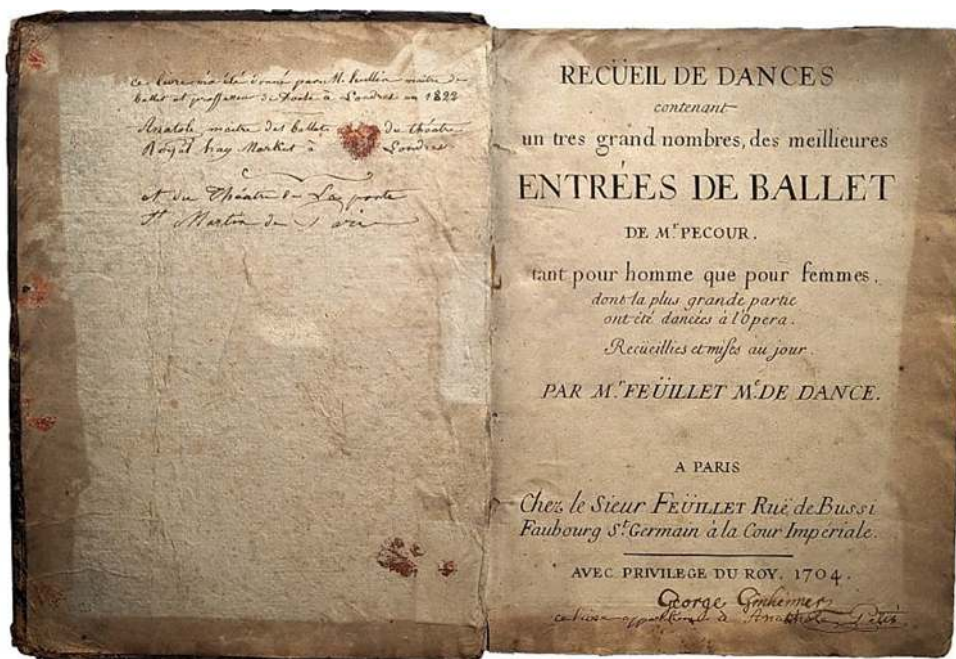 ce livre m'a été donné par M. Hullin maitre de
ballet et professeur de Danse à Londres en 1822
Anatole maitre des ballets du théatre
Royal hay Market à Londres
et du Théatre de La porte
St Martin de Paris
RECÜEIL DE DANCES
contenant
un tres grand nombres, des meillieures
ENTRÉES DE BALLET
DE Mr. PECOUR.
tant pour homme que pour femmes,
dont la plus grande partie
ont été dancées à l'Opera.
Recüeillies et mises au jour.
PAR Mr. FEÜILLET Me. DE DANCE.
A PARIS
Chez le Sieur FEÜILLET Ruë de Bussi
Faubourg St. Germain à la Cour Imperiale.
AVEC PRIVILEGE DU ROY. 1704.
George
ce livre appartient à Anathole Petit